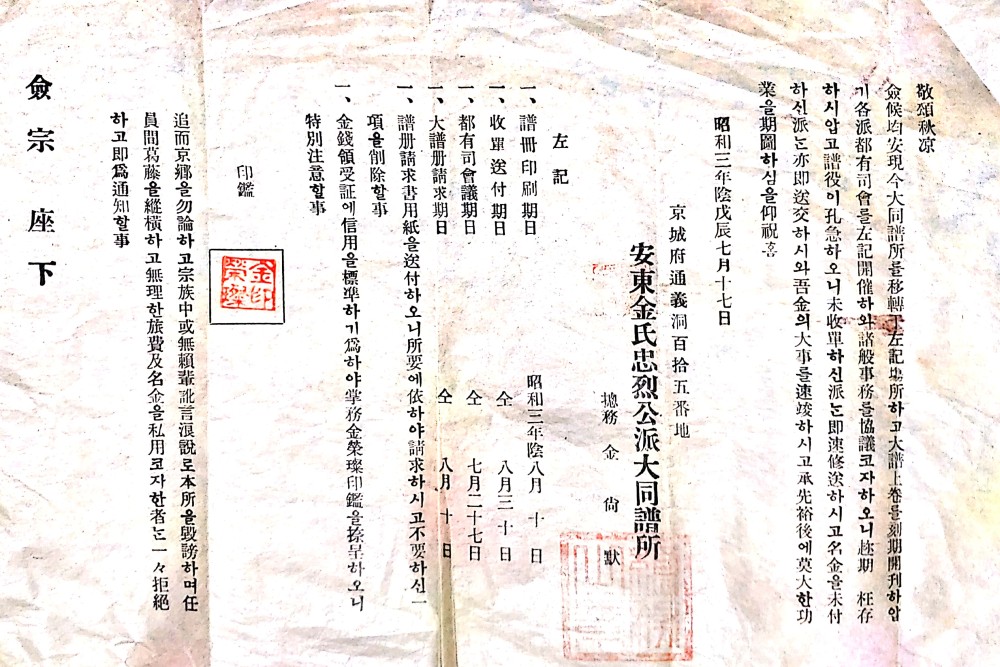 敬頌秋凉
僉候均安現今大同譜所를移轉于左記塲所하고大譜上卷를刻期開刊하압
기各派都有司會를左記開催하와諸般事務를協議코자하오니趂期 枉存
하시압고譜役이孔急하오니未收單하신派는即速修送하시고名金을未付
하신派는亦即送交하시와吾金의大事를速竣하시고承先裕後에莫大한功
業을期圖하심을仰祝홈
昭和三年陰戊辰七月十七日
京城府通義洞百拾五番地
安東金氏忠烈公派大同譜所
摠務 金 尙 默
左 記
一、譜冊印刷期日 昭和三年陰八月 十 日
一、收單送付期日 仝 八月三十日
一、都有司會議期日 仝 七月二十七日
一、大譜册請求期日 仝 八月 十 日
一、譜册請求書用紙을送付하오니所要에依하야請求하시고不要하신一
項을削除할事
一、金錢領受証에信用을標準하기爲하야掌務金榮璨印鑑을捺呈하오니
特別注意할事
印鑑
金印
榮璨
追而京鄉을勿論하고宗族中或無賴輩訛言浪說로本所을毀謗하며任
員間葛藤을縱橫하고無理한旅費及名金을私用코자한者는一々拒絕
하고即爲通知할事
僉 宗 座 下